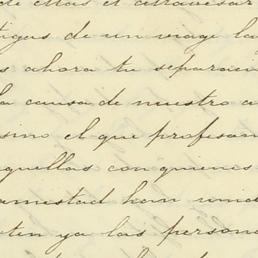 de ellas el atravesar
tigas de un viage la
s ahora tu separaci
la causa de nuestro a
sino el que profesan
quellas con quienes
amistad han unid
ten ya las persona